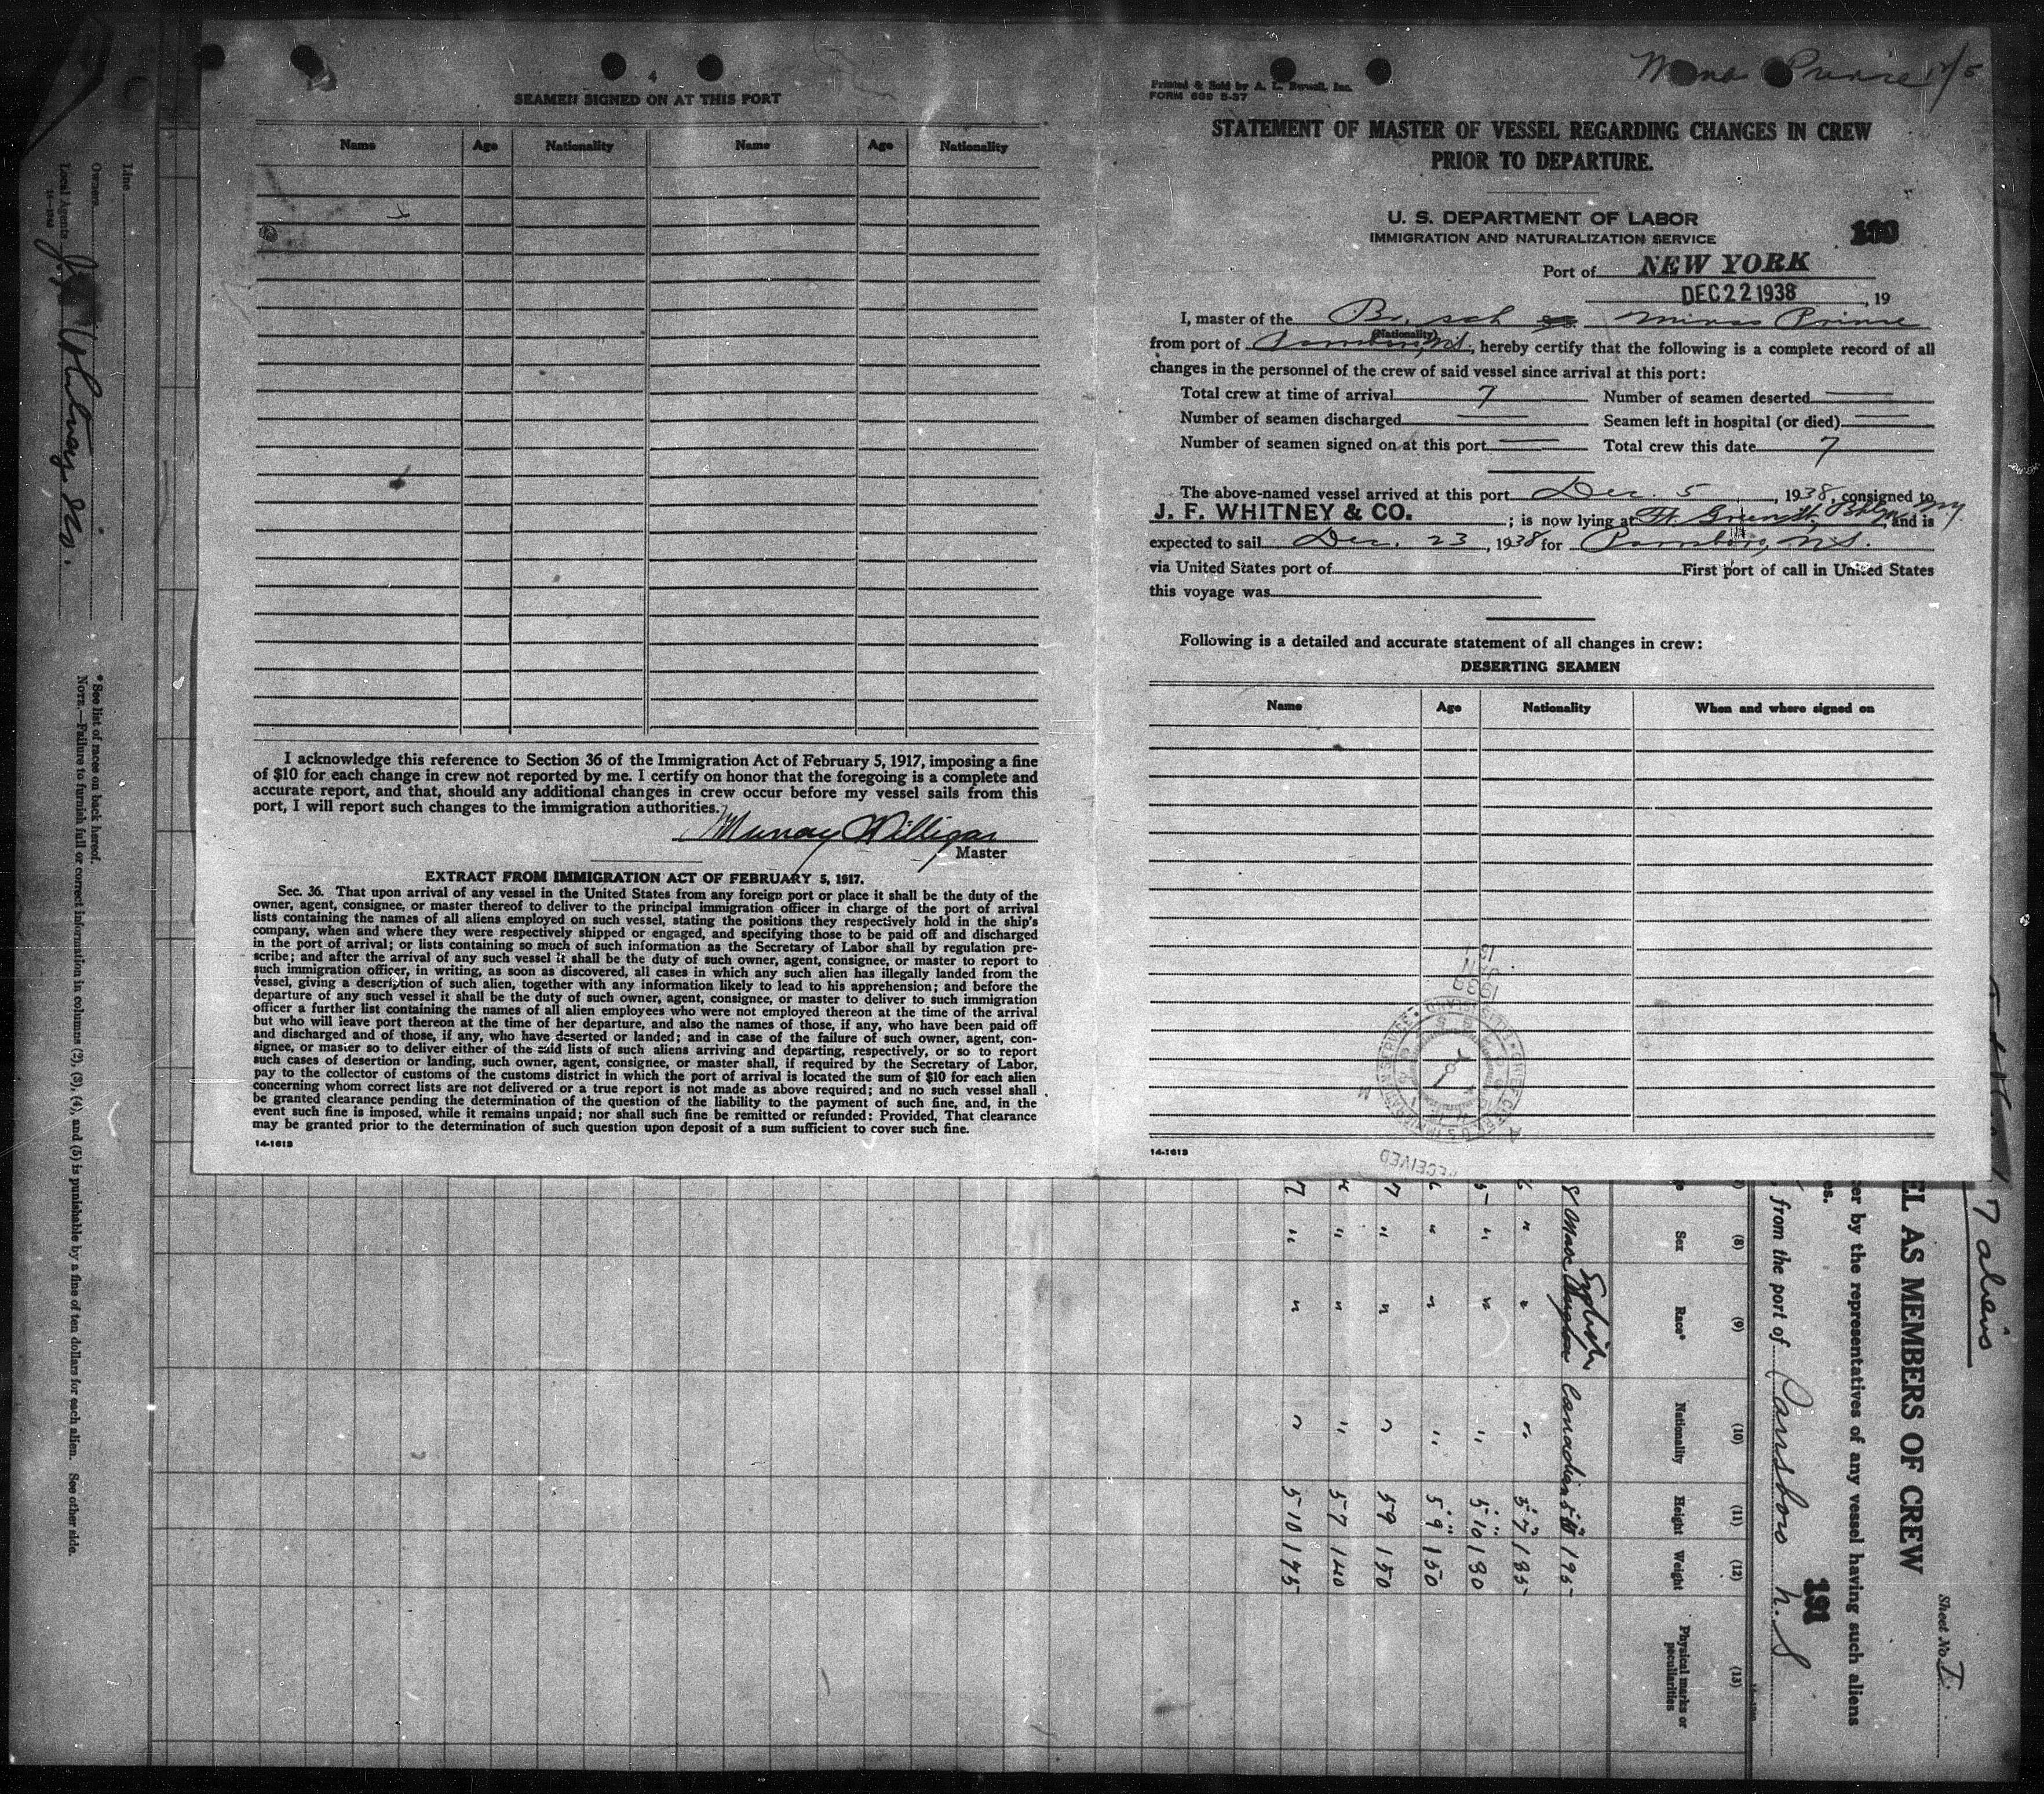 4
SEAMEN SIGNED ON AT THIS PORT
Name Age Nationality Name Age Nationality
I acknowledge this reference to Section 36 of the Immigration Act of February 5, 1917, imposing a fine
of $10 for each change in crew not reported by me. I certify on honor that the foregoing is a complete and
accurate report, and that, should any additional changes in crew occur before my vessel sails from this
port, I will report such changes to the immigration authorities.
Murray Willigar
Master
EXTRACT FROM IMMIGRATION ACT OF FEBRUARY 5, 1917.
Sec. 36. That upon arrival of any vessel in the United States from any foreign port or place it shall be the duty of the
owner, agent, consignee, or master thereof to deliver to the principal immigration officer in charge of the port of arrival
lists containing the names of all aliens employed on such vessel, stating the positions they respectively hold in the ship's
company, when and where they were respectively shipped or engaged, and specifying those to be paid off and discharged
in the port of arrival; or lists containing so much of such information as the Secretary of Labor shall by regulation pre-
scribe; and after the arrival of any such vessel it shall be the duty of such owner, agent, consignee, or master to report to
such immigration officer, in writing, as soon as discovered, all cases in which any such alien has illegally landed from the
vessel, giving a description of such alien, together with any information likely to lead to his apprehension; and before the
departure of any such vessel it shall be the duty of such owner, agent, consignee, or master to deliver to such immigration
officer a further list containing the names of all alien employees who were not employed thereon at the time of the arrival
but who will leave port thereon at the time of her departure, and also the names of those, if any, who have been paid off
and discharged and of those, if any, who have deserted or landed; and in case of the failure of such owner, agent, con-
signee, or master so to deliver either of the said lists of such aliens arriving and departing, respectively, or so to report
such cases of desertion or landing, such owner, agent, consignee, or master shall, if required by the Secretary of Labor,
pay to the collector of customs of the customs district in which the port of arrival is located the sum of $10 for each alien
concerning whom correct lists are not delivered or a true report is not made as above required; and no such vessel shall
be granted clearance pending the determination of the question of the liability to the payment of such fine, and, in the
event such fine is imposed, while it remains unpaid; nor shall such fine be remitted or refunded: Provided, That clearance
may be granted prior to the determination of such question upon deposit of a sum sufficient to cover such fine.
14-1613
Prince 12/5
Printed & Sold by A. L. Inc.
FORM 689 5-37
STATEMENT OF MASTER OF VESSEL REGARDING CHANGES IN CREW
PRIOR TO DEPARTURE.
U. S. DEPARTMENT OF LABOR
IMMIGRATION AND NATURALIZATION SERVICE
Port of NEW YORK
DEC 22 1938, 19
I, master of the Br. sch Minas Prince
(Nationality)
from port of Parrsboro, N.S., hereby certify that the following is a complete record of all
changes in the personnel of the crew of said vessel since arrival at this port:
Total crew at time of arrival 7 Number of seamen deserted
Number of seamen discharged Seamen left in hospital (or died)
Number of seamen signed on at this port Total crew this date 7
The above-named vessel arrived at this port Dec. 5, 1938, consigned to
J. F. WHITNEY & CO.; is now lying at Ft. Bklyn NY, and is
expected to sail Dec. 23, 1938 for Parrsboro, N.S.
via United States port of First port of call in United States
this voyage was
Following is a detailed and accurate statement of all changes in crew:
DESERTING SEAMEN
Name Age Nationality When and where signed on
1939
RECEIVED
14-1613
Line
Owners
Local Agents J. F. Whitney & Co.
*See list of races on back hereof.
NOTE.—Failure to furnish full or correct information in columns (2), (3), (4), and (5) is punishable by a fine of ten dollars for each alien. See other side.
7 aliens
Sheet No. 1
EL AS MEMBERS OF CREW
er by the representatives of any vessel having such aliens
es.
191
, from the port of Parrsboro N.S
(8) (9) (10) (11) (12) (13)
Sex Race* Nationality Height Weight Physical marks or peculiarities
8 Male English Canadian 195
6 " " " 5 7 185
" " " 5 10 190
" " " 5 9 150
7 " " " 5 9 150
" " " 5 7 140
7 " " " 5 10 175